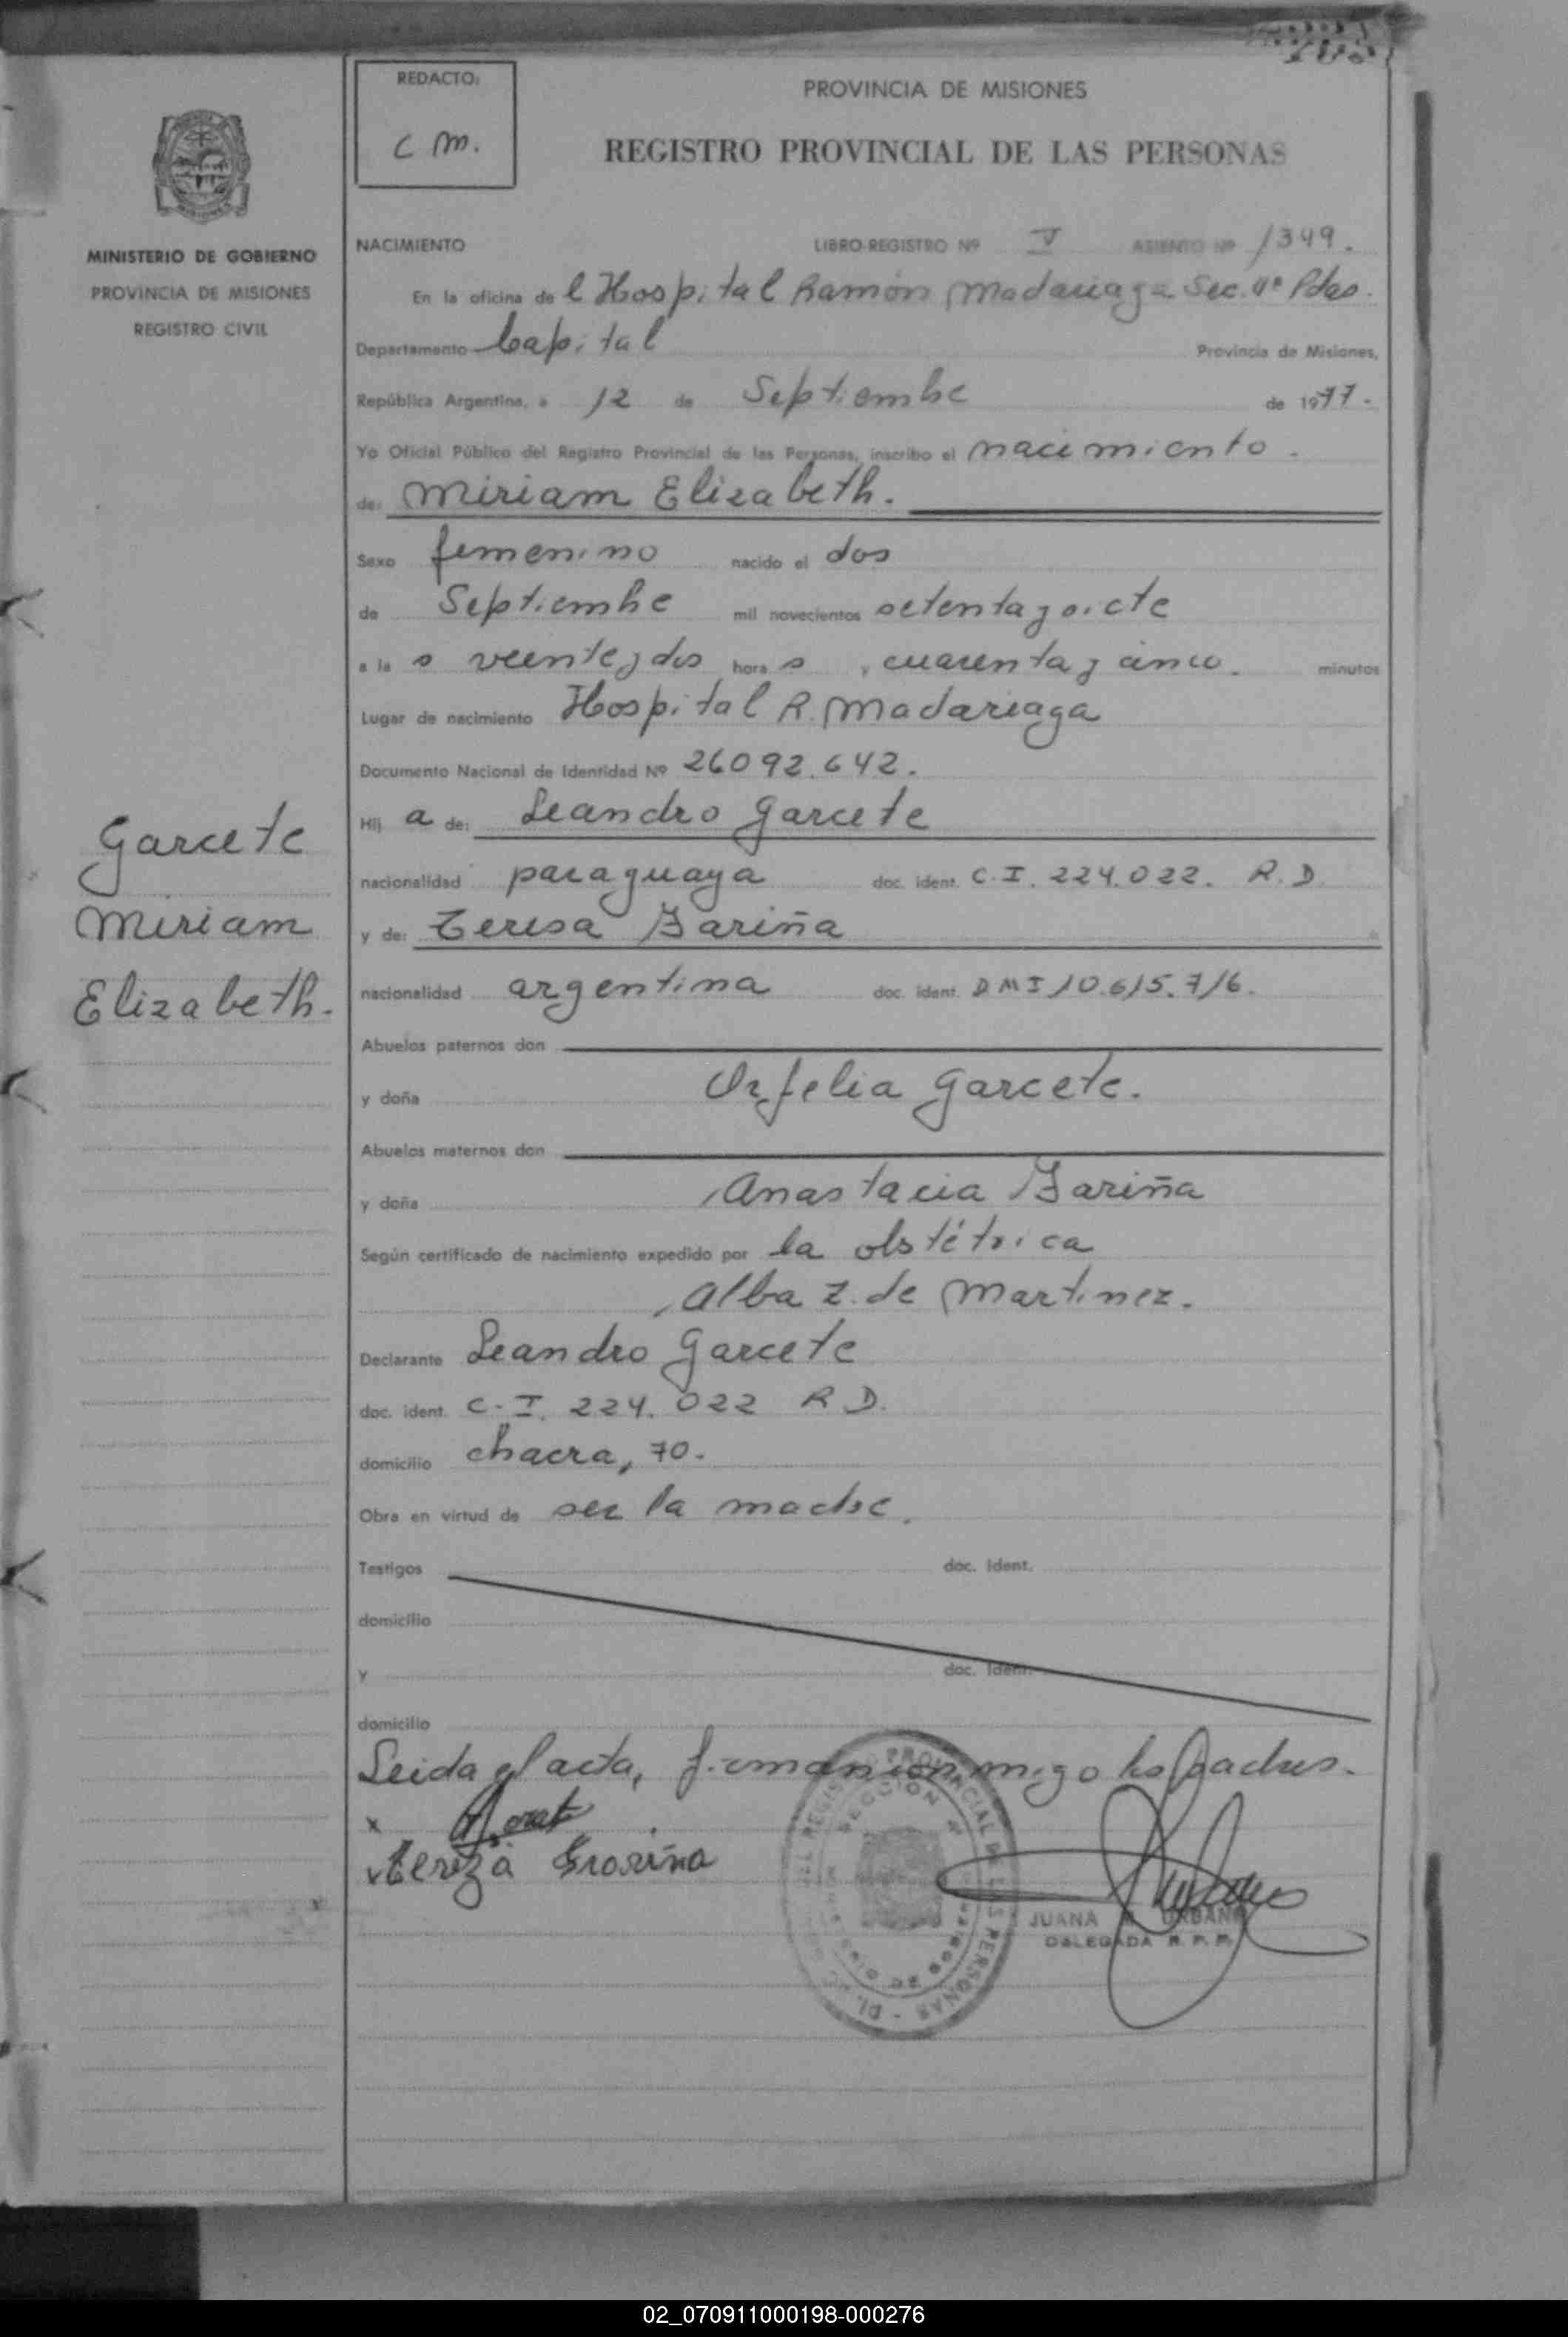 REDACTO:
C M.
PROVINCIA DE MISIONES
REGISTRO PROVINCIAL DE LAS PERSONAS
MINISTERIO DE GOBIERNO
PROVINCIA DE MISIONES
REGISTRO CIVIL
Garcete
Miriam
Elizabeth.
NACIMIENTO LIBRO-REGISTRO Nº V ASIENTO Nº 1349.
En la oficina de l Hospital Ramón Madariaga Sec. 4ª Pdas.
Departamento Capital Provincia de Misiones,
República Argentina, a 12 de Septiembre de 1977.
Yo Oficial Público del Registro Provincial de las Personas, inscribo el nacimiento.
de: Miriam Elizabeth.
Sexo femenino nacido el dos
de Septiembre mil novecientos setenta y siete
a la s veinte y dos hora s y cuarenta y cinco. minutos
Lugar de nacimiento Hospital R. Madariaga
Documento Nacional de Identidad Nº 26092.642.
Hij a de: Leandro Garcete
nacionalidad paraguaya doc. ident. C.I. 224.022. R.D.
y de: Teresa Fariña
nacionalidad argentina doc. ident. DMI 10.615.716.
Abuelos paternos don
y doña Orfelia Garcete.
Abuelos maternos don
y doña Anastacia Fariña
Según certificado de nacimiento expedido por la obstétrica
Alba Z. de Martinez.
Declarante Leandro Garcete
doc. ident. C.I. 224.022 R D.
domicilio chacra, 70.
Obra en virtud de ser la madre.
Testigos doc. Ident.
domicilio
y doc. Ident.
domicilio
Leida el acta, firman conmigo los padres.
x
x tereza
JUANA URBANO
DELEGADA R. P. P.
REGISTRO PROVINCIAL DE LAS PERSONAS
SECCION 4ª
02_070911000198-000276